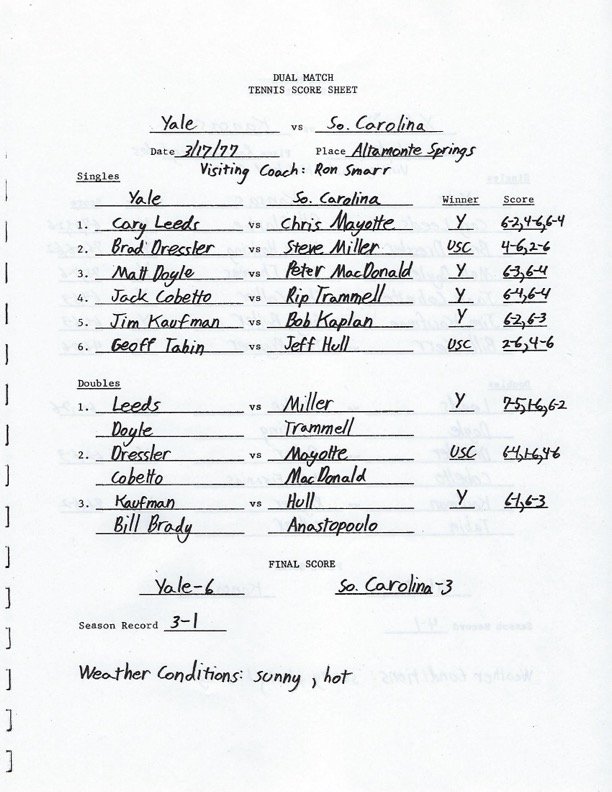 DUAL MATCH
TENNIS SCORE SHEET
Yale vs So. Carolina
Date 3/17/77 Place Altamonte Springs
Visiting Coach: Ron Smarr
Singles
Yale So. Carolina Winner Score
1. Cary Leeds vs Chris Mayotte Y 6-2,4-6,6-4
2. Brad Dressler vs Steve Miller USC 4-6,2-6
3. Matt Doyle vs Peter MacDonald Y 6-3,6-4
4. Jack Cobetto vs Rip Trammell Y 6-4,6-4
5. Jim Kaufman vs Bob Kaplan Y 6-2,6-3
6. Geoff Tabin vs Jeff Hull USC 2-6,4-6
Doubles
1. Leeds vs Miller Y 7-5,1-6,6-2
Doyle Trammell
2. Dressler vs Mayotte USC 6-4,1-6,4-6
Cobetto MacDonald
3. Kaufman vs Hull Y 6-1,6-3
Bill Brady Anastopoulo
FINAL SCORE
Yale-6 So. Carolina-3
Season Record 3-1
Weather Conditions: sunny, hot